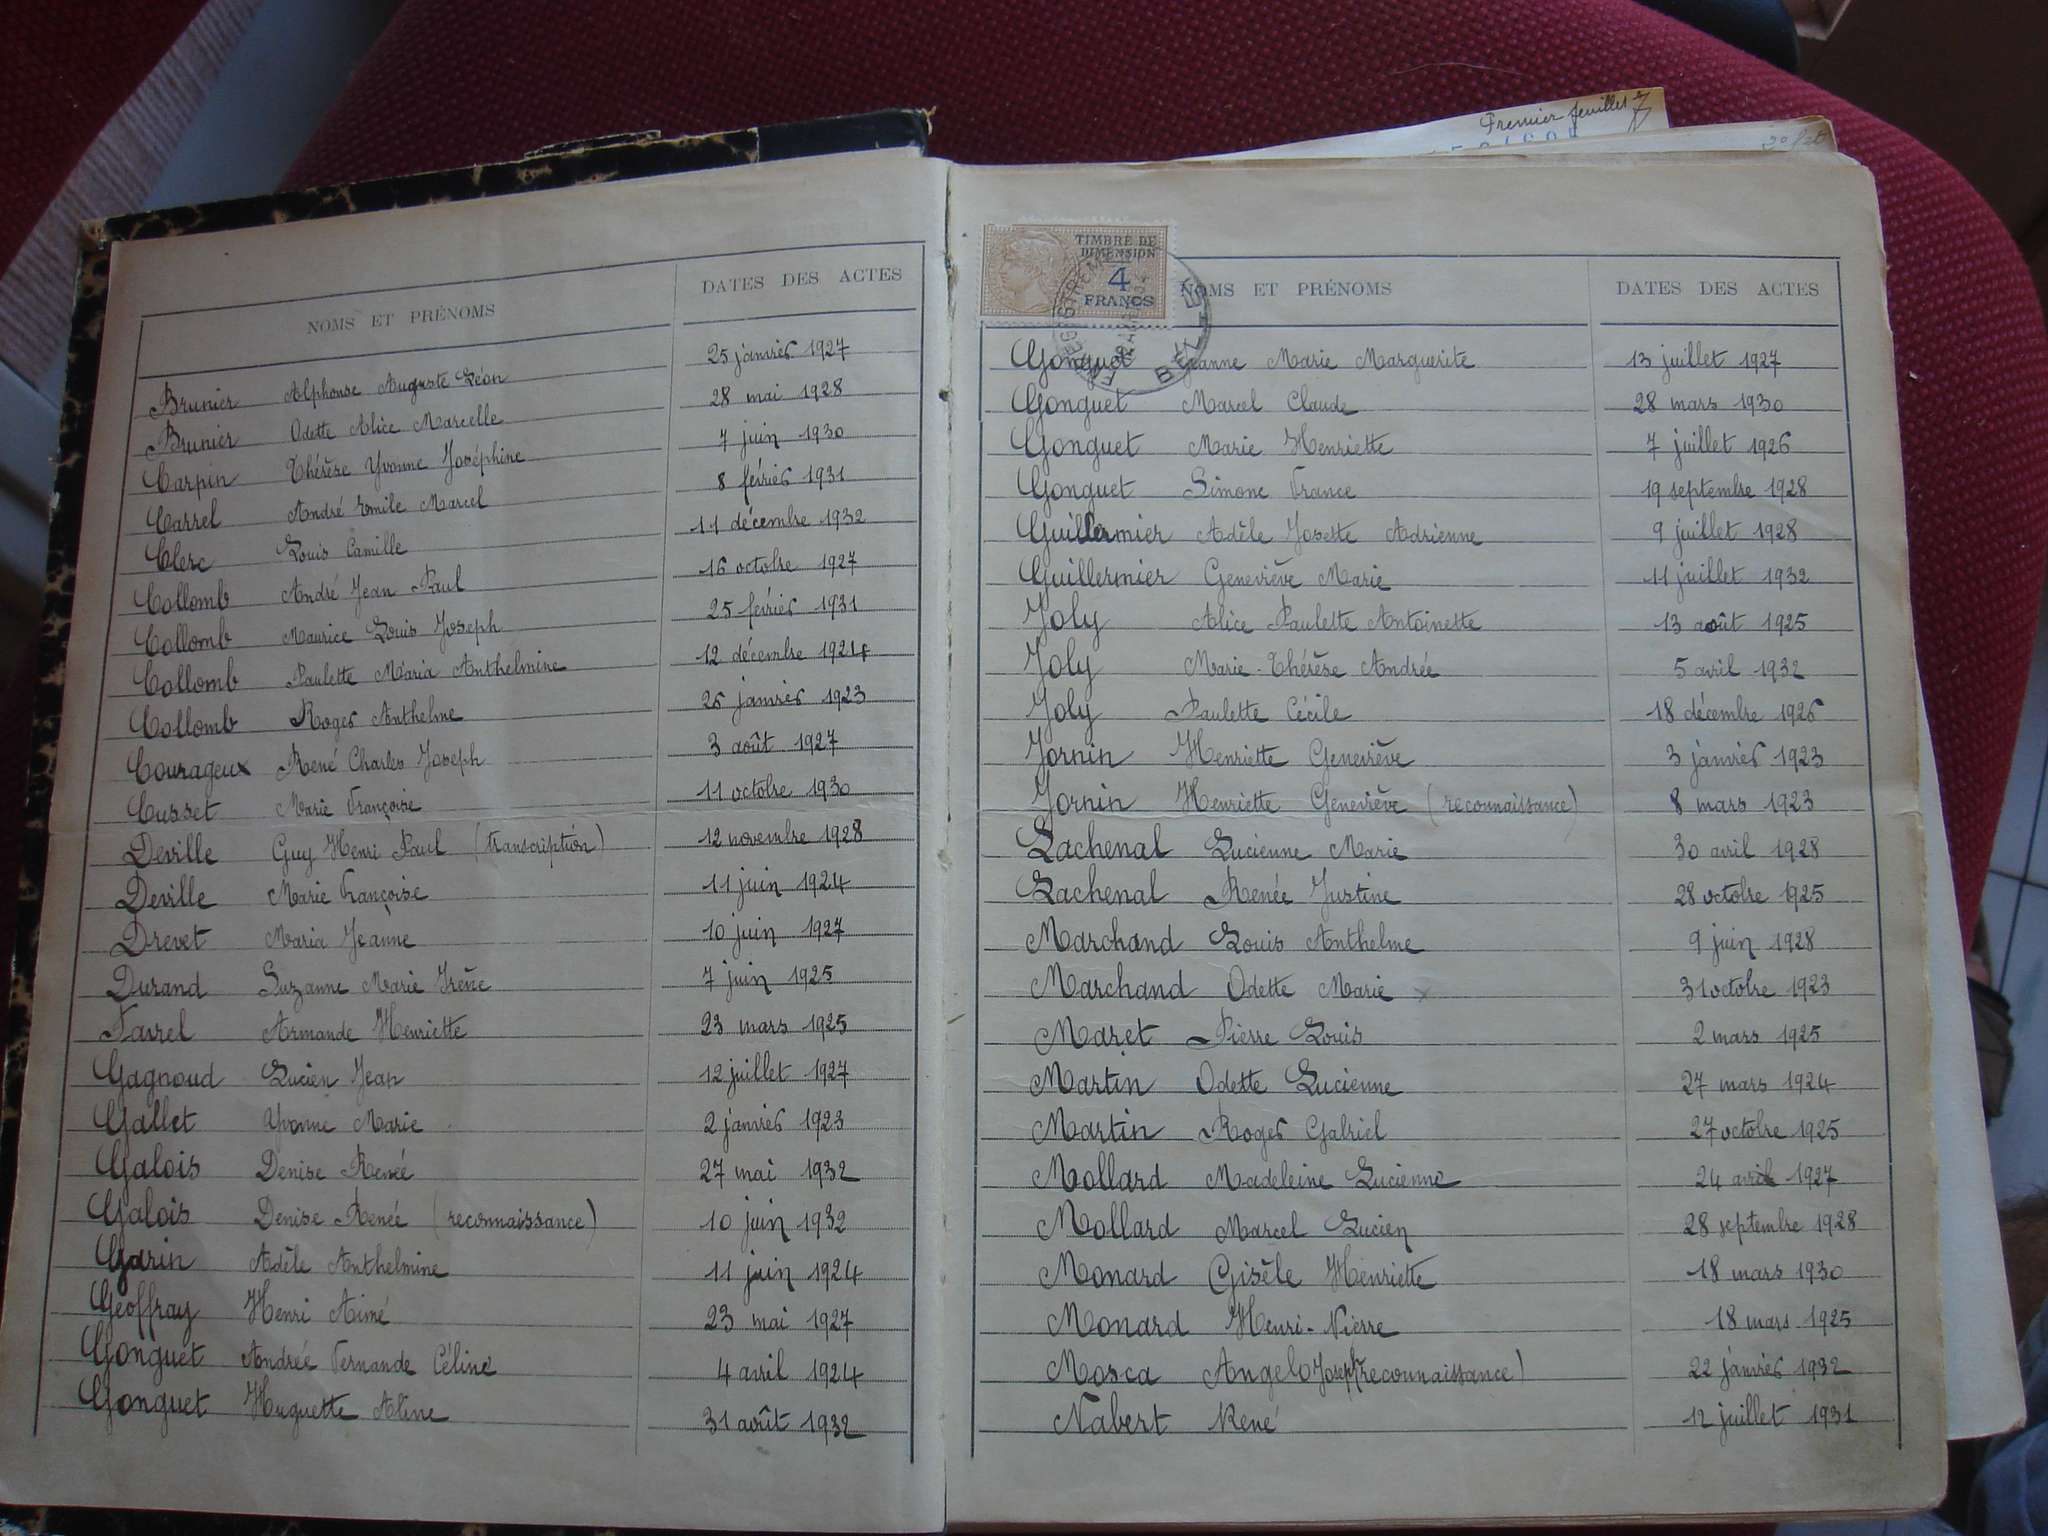 Premier feuillet
20/25
NOMS ET PRÉNOMS DATES DES ACTES
Brunier Alphonse Auguste Léon 25 janvier 1927
Brunier Odette Alice Marcelle 28 mai 1928
Carpin Thérèse Yvonne Joséphine 7 juin 1930
Carrel André Emile Marcel 8 février 1931
Clerc Louis Camille 11 décembre 1932
Collomb André Jean Paul 16 octobre 1927
Collomb Maurice Louis Joseph 25 février 1931
Collomb Paulette Maria Anthelmine 12 décembre 1924
Collomb Roger Anthelme 26 janvier 1923
Courageux René Charles Joseph 3 août 1927
Cusset Marie Françoise 11 octobre 1930
Deville Guy Henri Paul (transcription) 12 novembre 1928
Deville Marie Françoise 11 juin 1924
Drevet Maria Jeanne 10 juin 1927
Durand Suzanne Marie Irène 7 juin 1925
Favrel Armande Henriette 23 mars 1925
Gagnoud Lucien Jean 12 juillet 1927
Gallet Yvonne Marie 2 janvier 1923
Galois Denise Renée 27 mai 1932
Galois Denise Renée (reconnaissance) 10 juin 1932
Garin Adèle Anthelmine 11 juin 1924
Geoffray Henri Aimé 23 mai 1927
Gonguet Andrée Fernande Céline 4 avril 1924
Gonguet Huguette Aline 31 août 1932
TIMBRE DE
DIMENSION
4
FRANCS
BELLE
NOMS ET PRÉNOMS DATES DES ACTES
Gonguet Jeanne Marie Marguerite 13 juillet 1927
Gonguet Marcel Claude 28 mars 1930
Gonguet Marie Henriette 7 juillet 1926
Gonguet Simone France 19 septembre 1928
Guillermier Adèle Josette Adrienne 9 juillet 1928
Guillermier Geneviève Marie 11 juillet 1932
Joly Alice Paulette Antoinette 13 août 1925
Joly Marie-Thérèse Andrée 5 avril 1932
Joly Paulette Cécile 18 décembre 1926
Jornin Henriette Geneviève 3 janvier 1923
Jornin Henriette Geneviève (reconnaissance) 8 mars 1923
Lachenal Lucienne Marie 30 avril 1928
Lachenal Renée Justine 28 octobre 1925
Marchand Louis Anthelme 9 juin 1928
Marchand Odette Marie x 31 octobre 1923
Maret Pierre Louis 2 mars 1925
Martin Odette Lucienne 27 mars 1924
Martin Roger Gabriel 27 octobre 1925
Mollard Madeleine Lucienne 24 avril 1927
Mollard Marcel Lucien 28 septembre 1928
Monard Gisèle Henriette 18 mars 1930
Monard Henri-Pierre 18 mars 1925
Mosca Angelo Joseph (reconnaissance) 22 janvier 1932
Nabert René 12 juillet 1931